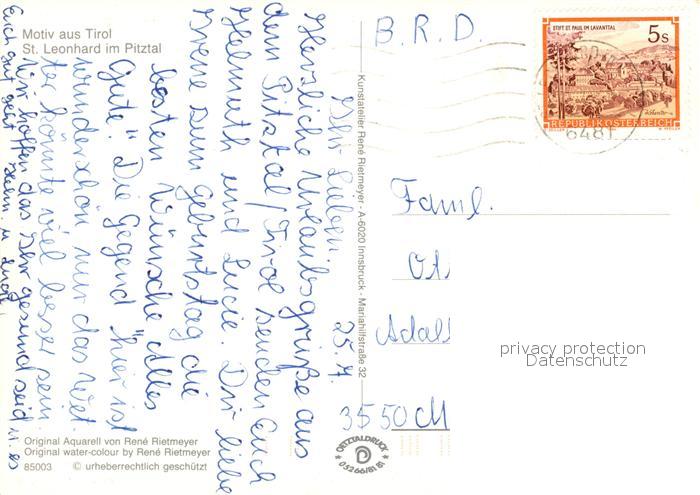 Motiv aus Tirol
St. Leonhard im Pitztal
B. R. D.
STIFT ST. PAUL IM LAVANTTAL
5 S
REPUBLIK ÖSTERREICH
6481
Ihr Lieben.
25. 7.
Herzliche Urlaubsgrüße aus
dem Pitztal / Tirol senden Euch
Helmuth und Lucie. Dir liebe
Irene zum Geburtstag die
besten Wünsche "Alles
Gute". Die Gegend hier ist
wunderschön nur das Wet-
ter könnte viel besser sein.
Wir hoffen das Ihr gesund seid u. es
Euch gut geht
Kunstatelier René Rietmeyer - A-6020 Innsbruck - Mariahilfstraße 32
Faml.
Ot
Adal
3550 M
privacy protection
Datenschutz
Original Aquarell von René Rietmeyer
Original water-colour by René Rietmeyer
85003 © urheberrechtlich geschützt
OETZTALDRUCK
05266/8181